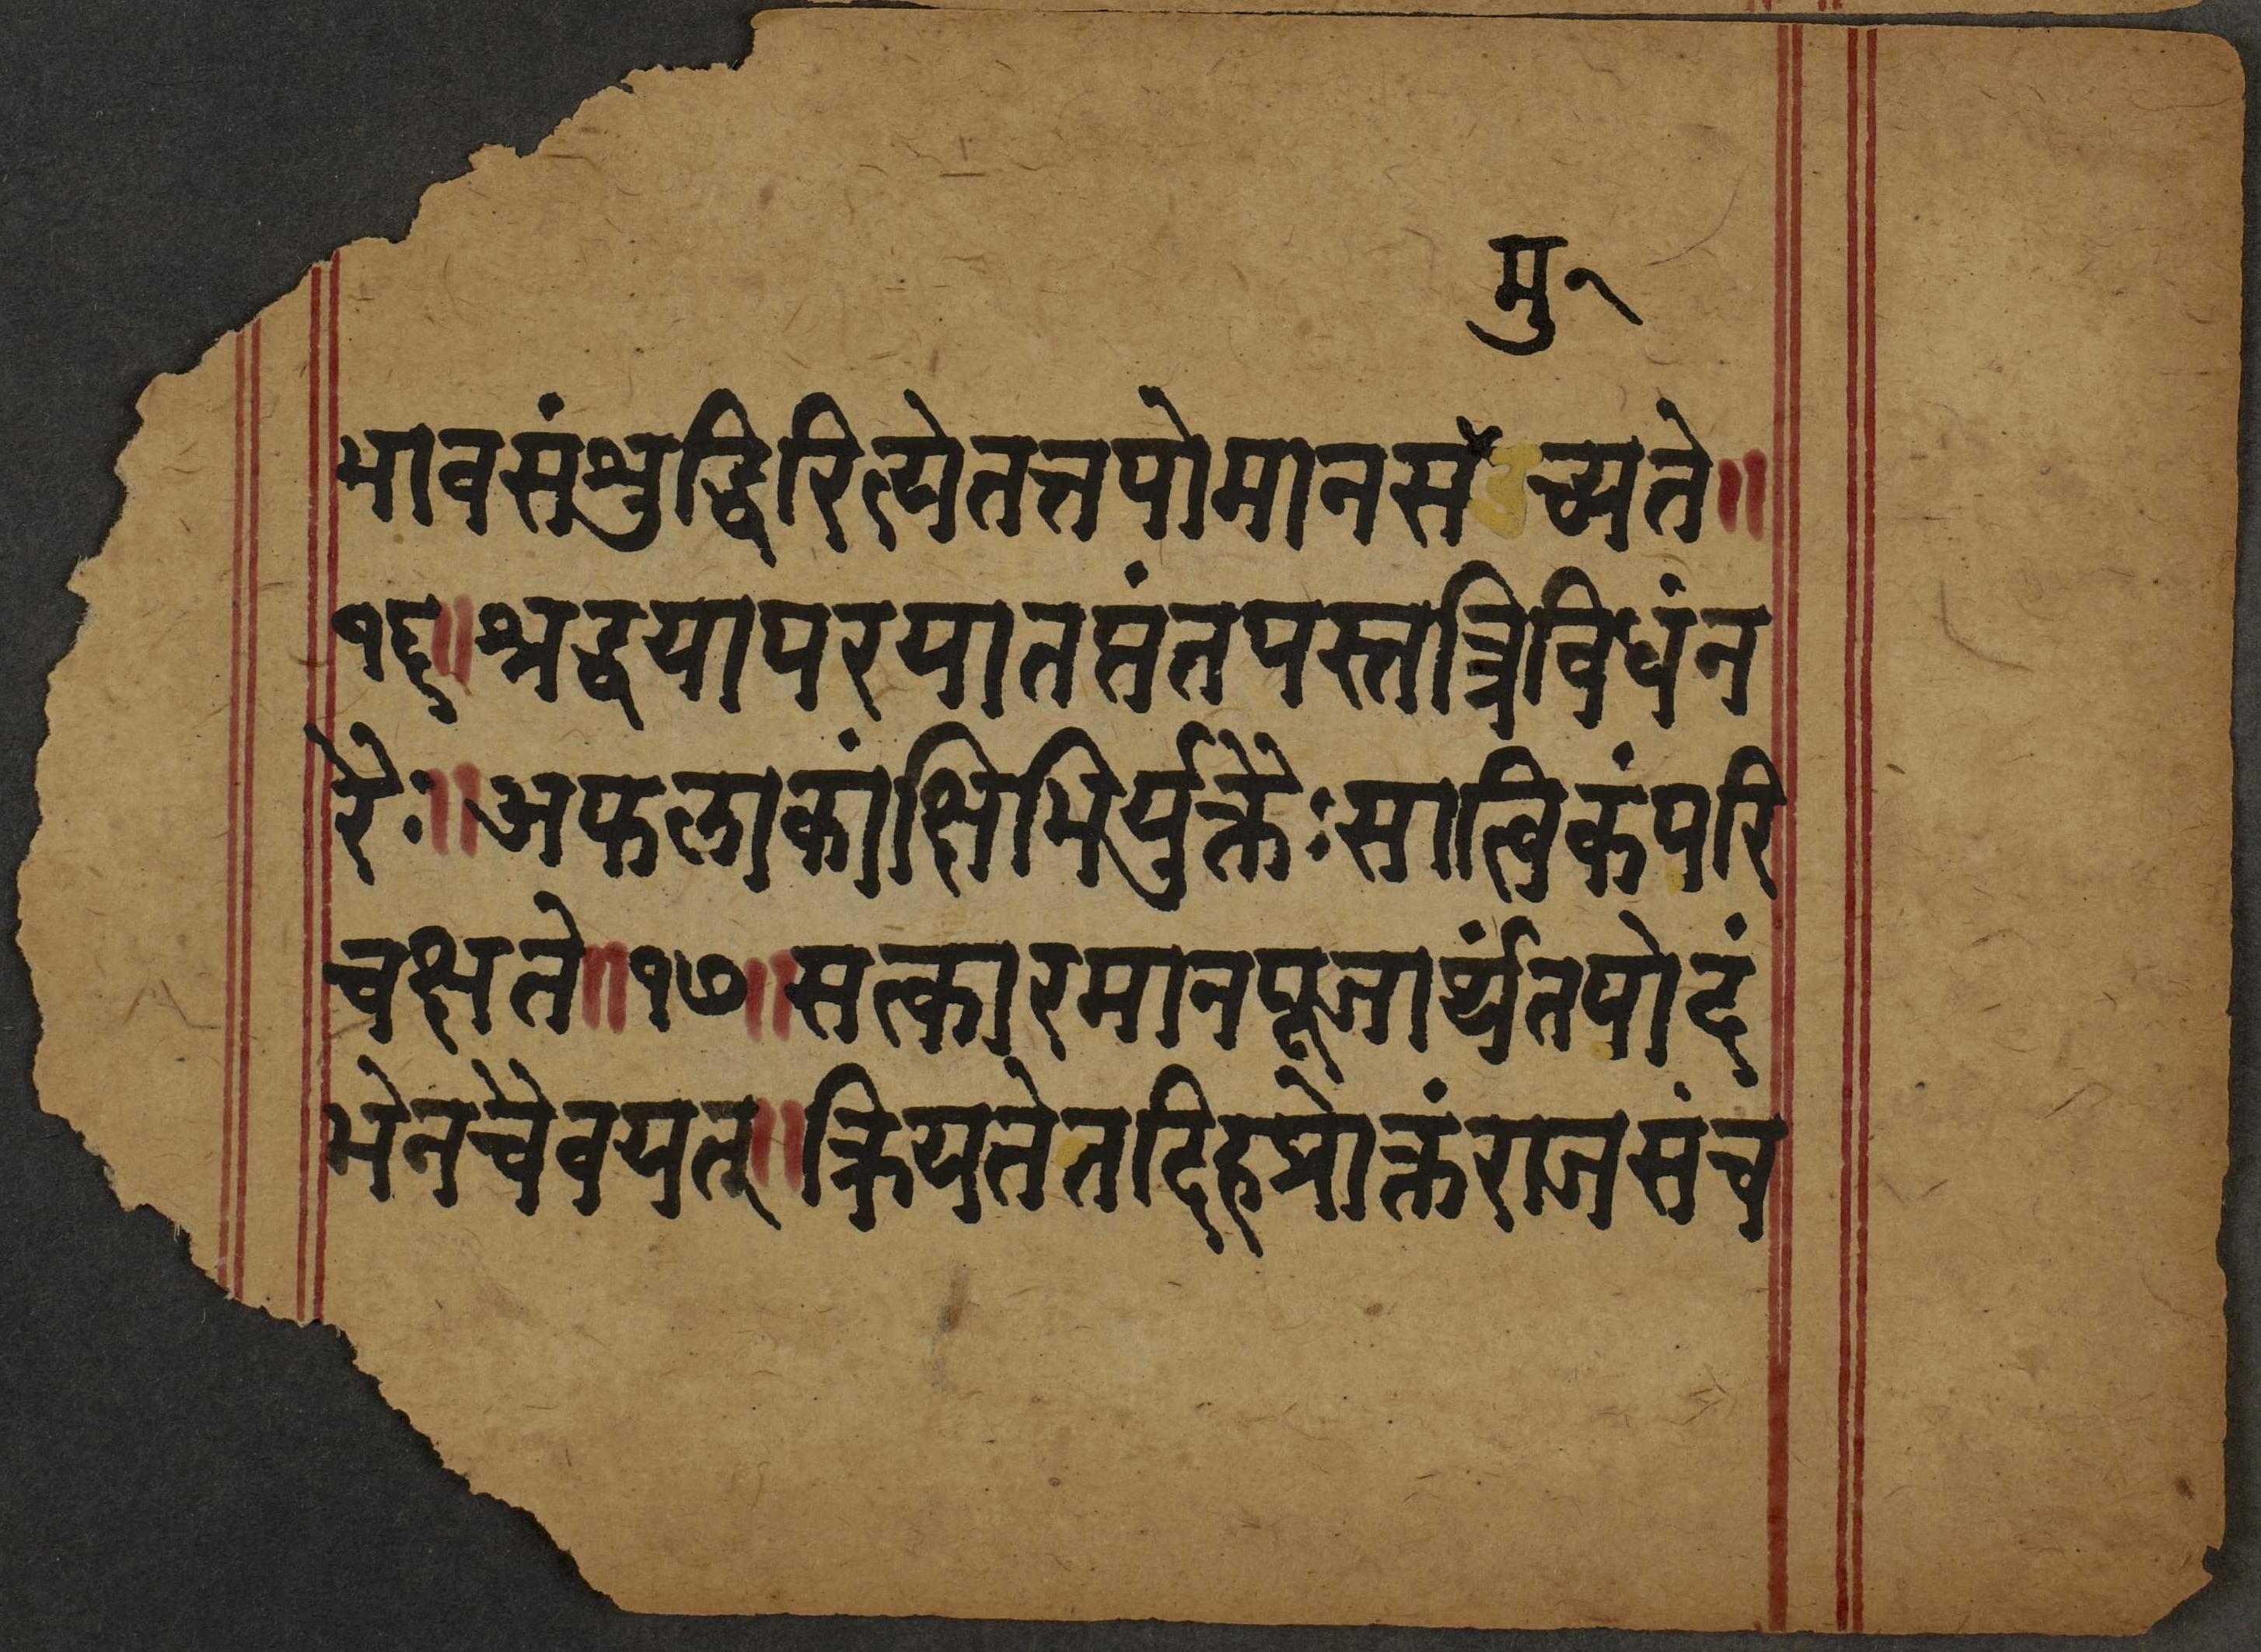 मु१
भावसंशुद्धिरित्येतत्तपोमानसउच्यते॥
१६॥श्रद्धयापरयातप्तंतपस्तत्त्रिविधंन
रैः॥अफलाकांक्षिभिर्युक्तैःसात्विकंपरि
चक्षते॥१७॥सत्कारमानपूजार्थंतपोदं
भेनचैवयत्॥क्रियतेतदिहप्रोक्तंराजसंच